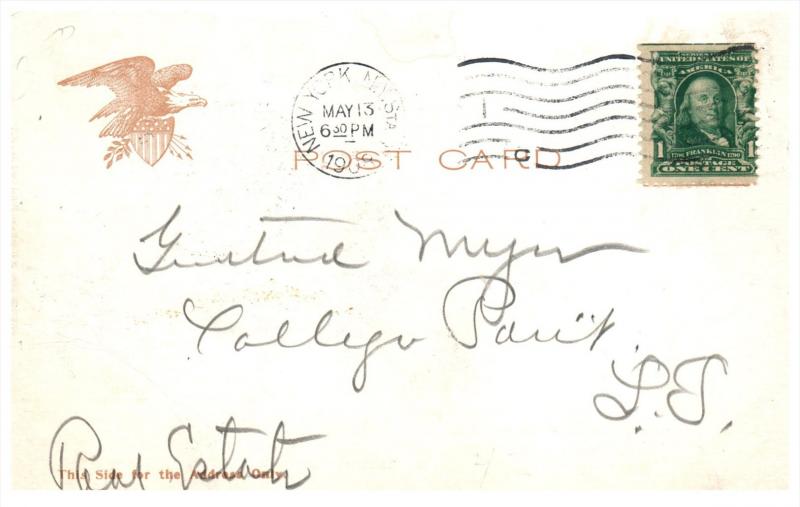 NEW YORK, N.Y. STA
MAY 13
6 30 PM
1908
C
SERIES 1902
UNITED STATES OF
AMERICA
1 1706 FRANKLIN 1790 1
POSTAGE
ONE CENT
POST CARD
Gertrud Myer
College Point
L.I.
Real Estate
This Side for the Address Only.